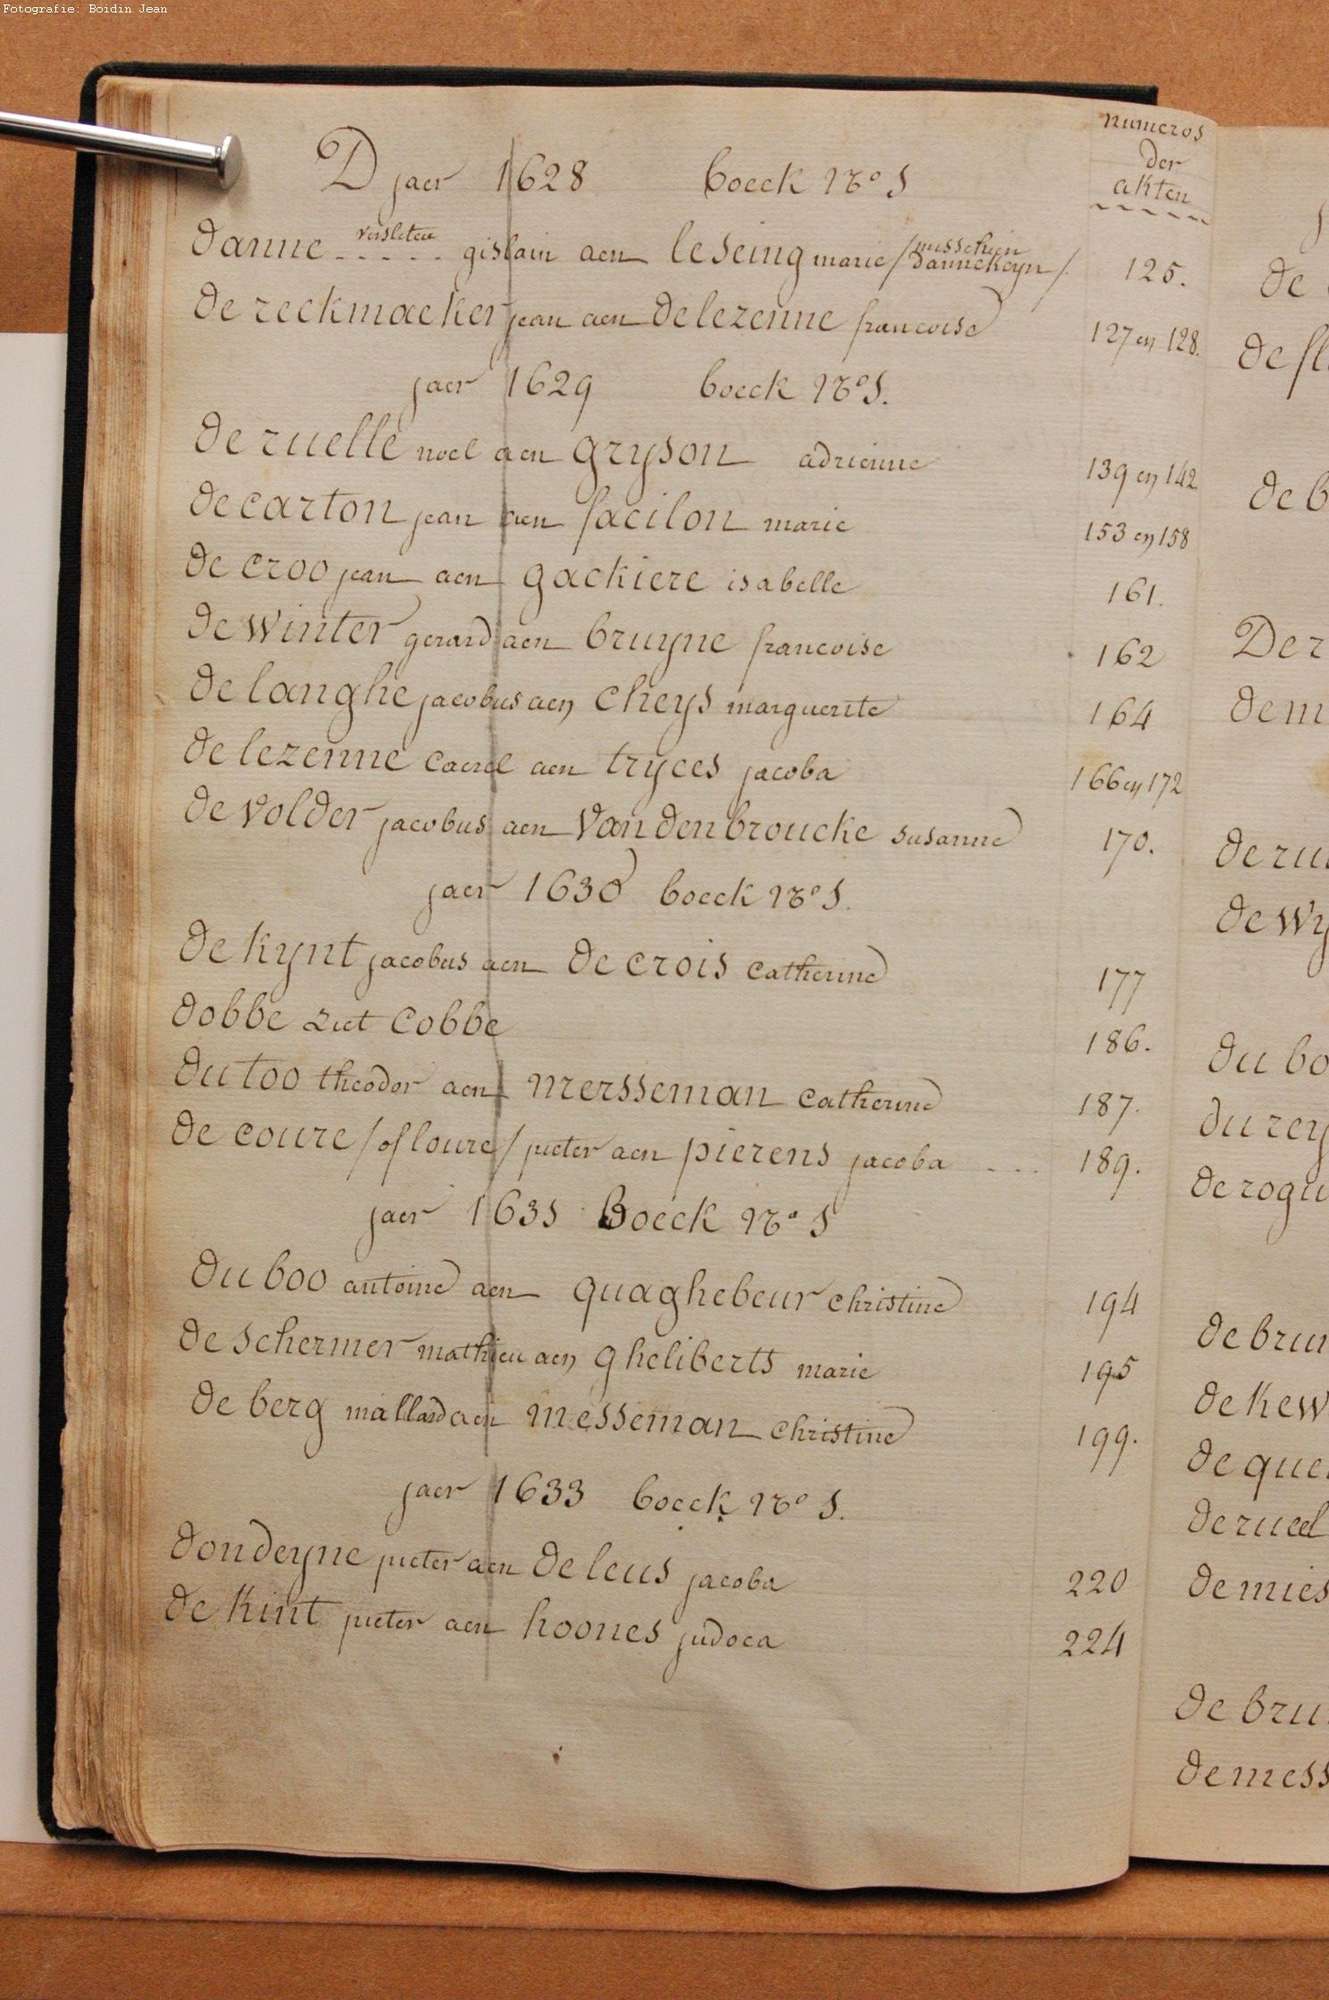 Fotografie: Boidin Jean
numeros
der
akten
D jaer 1628 boeck No 1
danne versleten ..... gislain aen leseing marie /misschien dannekeyn/ 125.
de reckmaeker jean aen delezenne francoise 127 en 128.
jaer 1629 boeck No 1.
de ruelle noel aen gryson adrienne 139 en 142
de carton jean aen facilon marie 153 en 158
de croo jean aen gackiere isabelle 161.
de winter gerard aen bruyne francoise 162
de langhe jacobus aen cheys marguerite 164
de lezenne caerel aen tryces jacoba 166 en 172
de volder jacobus aen vandenbroucke susanne 170.
jaer 1630 boeck No 1.
de kynt jacobus aen de crois catherine 177
dobbe ziet cobbe 186.
du too theodor aen mersseman catherine 187.
de coure /of loure/ pieter aen pierens jacoba ... 189.
jaer 1631 Boeck No 1
du boo antoine aen quaghebeur christine 194
de schermer mathieu aen gheliberts marie 195
de berg mallard aen messeman christine 199.
jaer 1633 boeck No 1.
dondeyne pieter aen de leus jacoba 220
de kint pieter aen hoones judoca 224
de
de fl
de b
De r
de m
de ru
de wy
du bo
du rey
de rogu
de brun
de kew
de que
de rueel
de mies
de bru
de mess